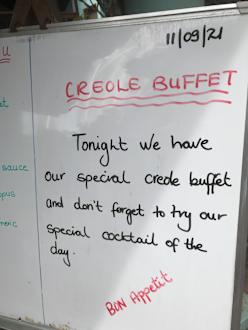 11/09/21
U
CREOLE BUFFET
Tonight we have
our special creole buffet
and don't forget to try our
special cocktail of the
day.
sauce
BON Appetit